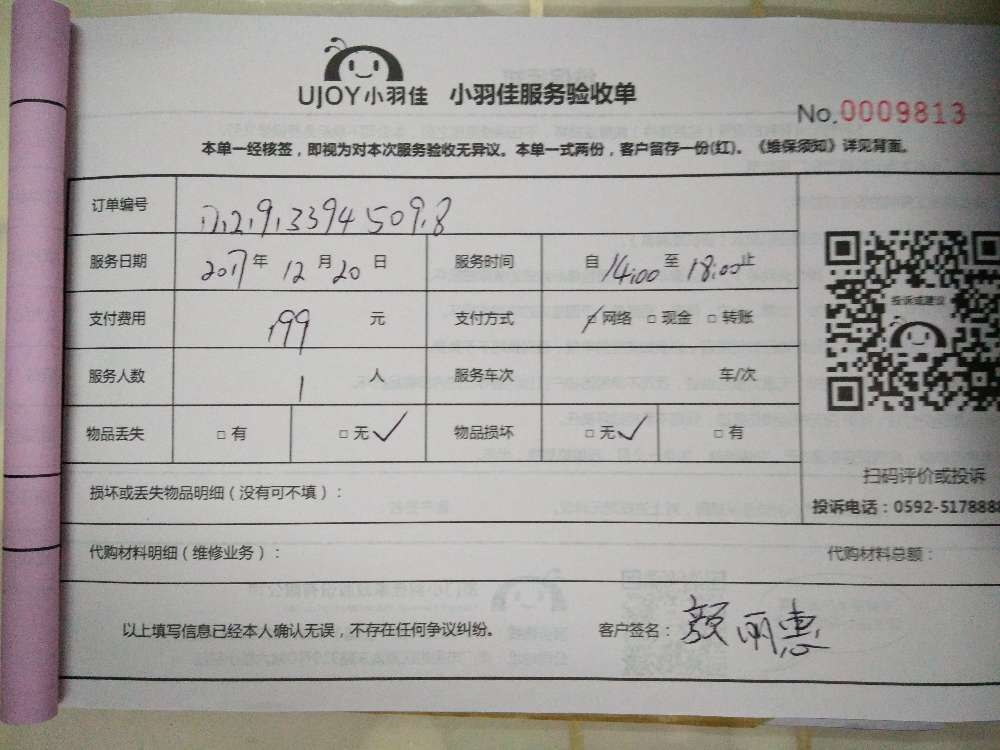 UJOY小羽佳 小羽佳服务验收单
No.0009813
本单一经核签，即视为对本次服务验收无异议。本单一式两份，客户留存一份(红)。《维保须知》详见背面。
订单编号
服务日期 2017 年 12 月 20 日 服务时间 自 14:00 至 18:00 止
投诉或建议
支付费用 199 元 支付方式 □ 网络 □ 现金 □ 转账
服务人数 1 人 服务车次 车/次
物品丢失 □ 有 □ 无 ✓ 物品损坏 □ 无 ✓ □ 有
扫码评价或投诉
损坏或丢失物品明细（没有可不填）：
投诉电话：0592-5178888
代购材料明细（维修业务）： 代购材料总额：
以上填写信息已经本人确认无误，不存在任何争议纠纷。 客户签名：颜丽惠